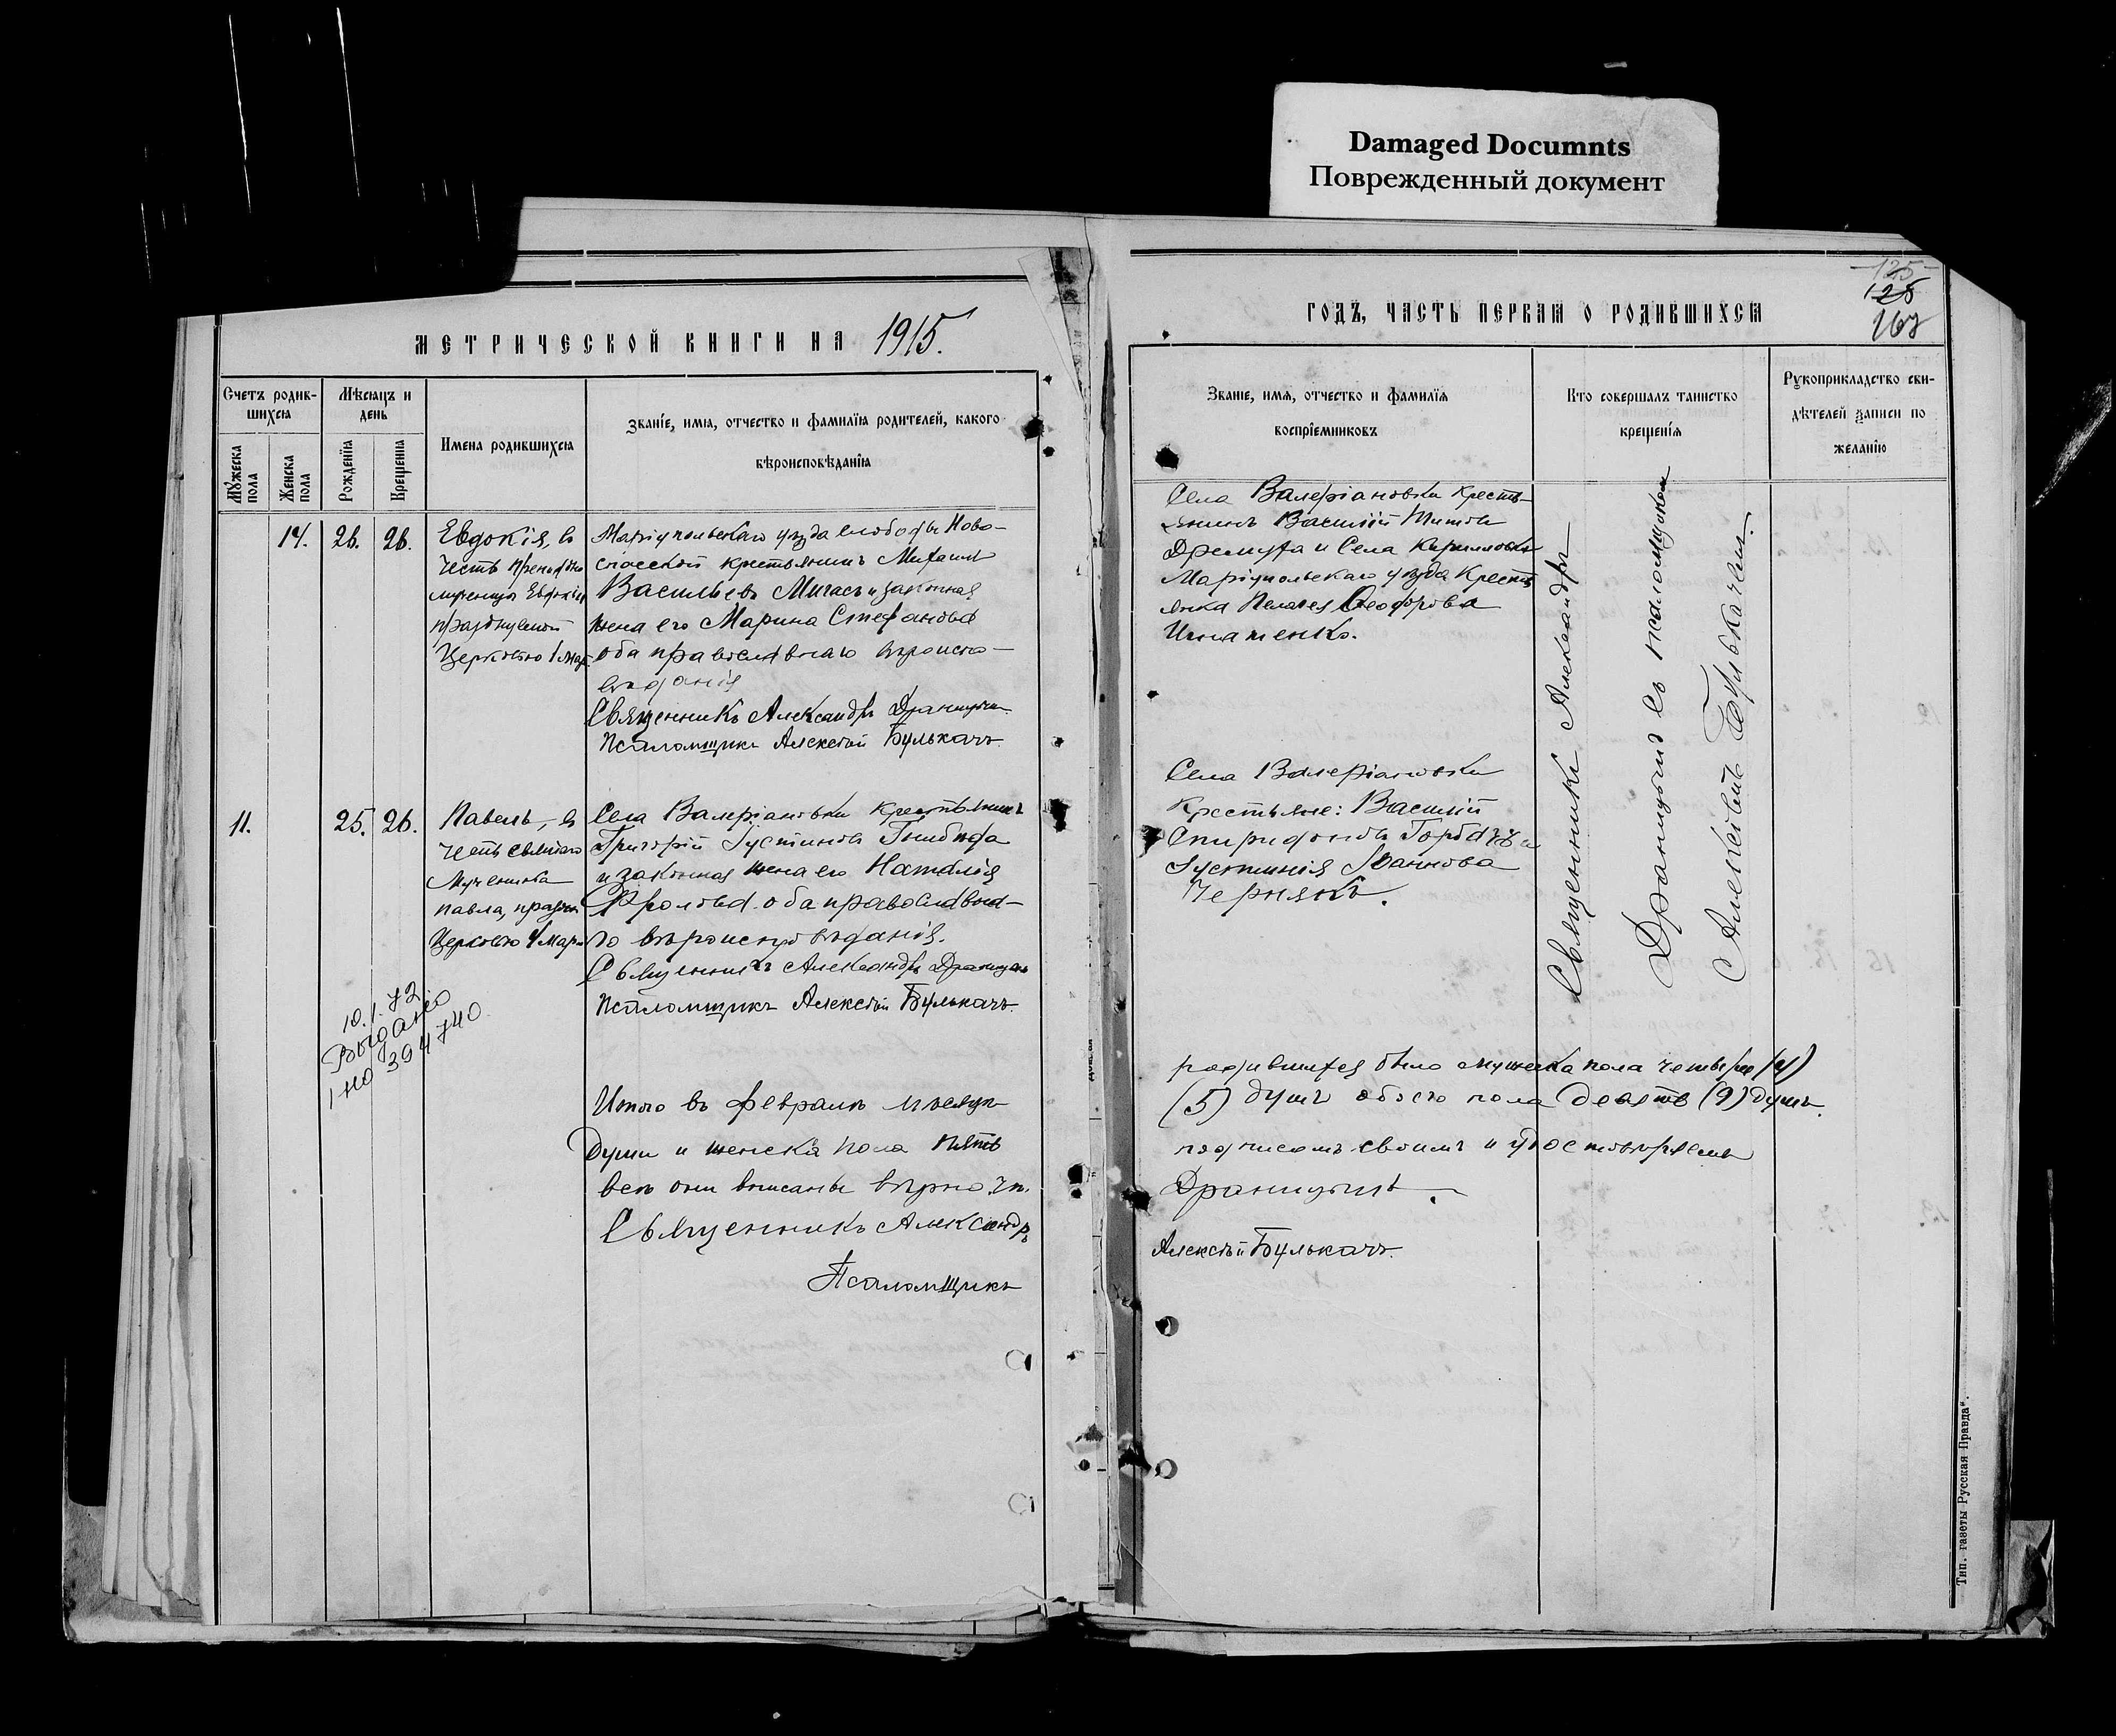 Damaged Documnts
Поврежденный документ
МЕТРИЧЕСКОЙ КНИГИ НА 1915.
Счетъ родив-
шихся
Мѣсяцъ и
день
Мужеска
пола
Женска
пола
Рожденія
Крещенія
Имена родившихся
Званіе, имя, отчество и фамилія родителей, какого
вѣроисповѣданія
14.
26.
26.
Евдокія, въ
честь Преподобно
мученицы Евдокіи
празднуемой
Церковью 1 мар.
Маріупольскаго уѣзда слободы Ново-
спасской крестьянинъ Михаилъ
Васильевъ Мигасъ и законная
жена его Марина Стефанова
оба православнаго вѣроиспо-
вѣданія
Священникъ Александръ Драницынъ
Псаломщикъ Алексѣй Булькачъ.
11.
25.
26.
Павелъ, въ
честь святого
Мученика
Павла, праздн
Церковью 4 Мар
Села Валеріановки крестьянинъ
Григорій Іустиновъ
и законная жена его Наталія
Фролова. оба православна-
го вѣроисповѣданія.
Священникъ Александръ Драницынъ
Псаломщикъ Алексѣй Булькачъ.
10.1.72
Выдано
1 НО 394740
Итого въ февралѣ мѣсяцѣ
души и женска пола пять
всѣ они вписаны вѣрно.
Священникъ Александръ
Псаломщикъ
-125-
125
167
ГОДЪ, ЧАСТЬ ПЕРВАЯ О РОДИВШИХСЯ
Званіе, имя, отчество и фамилія
воспріемниковъ
Кто совершалъ таинство
крещенія
Рукоприкладство сви-
дѣтелей записи по
желанію
Села Валеріановки кресть-
янинъ Василій Титовъ
Дремуха и Села Кирилловки
Маріупольскаго уѣзда крестъ
янка Пелагея Ѳеодорова
Игнатенко.
Села Валеріановки
Крестьяне: Василій
Спиридоновъ Горбачъ и
Іустинія Іоаннова
Чернякъ.
Священникъ Александръ
Драницынъ съ псаломщикомъ
Алексѣемъ Булькачемъ.
родившихся было мужска пола четыре (4)
(5) душъ обоего пола девять (9) душъ.
подписомъ своимъ и удостовѣряемъ
Драницынъ.
Алексѣй Булькачъ.
Тип. газеты Русская Правда".